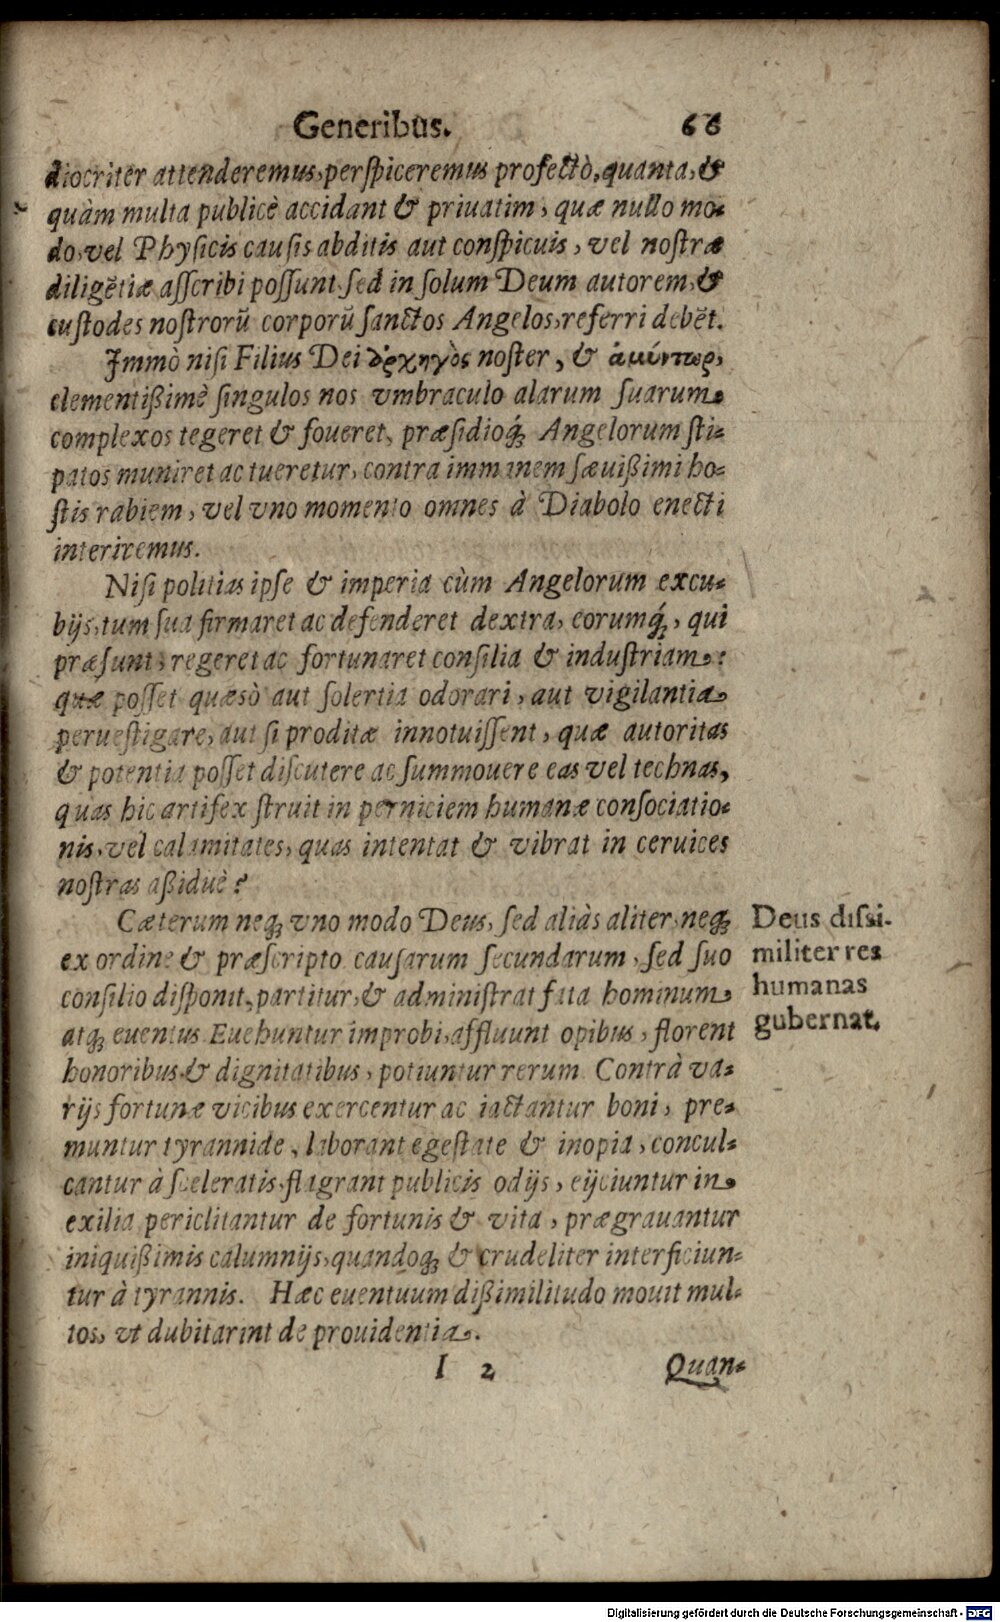 Generibus. 66
diocriter attenderemus, perspiceremus profectò, quanta, &
quàm multa publicè accidant & priuatim, quæ nullo mo-
do, vel Physicis causis abditis aut conspicuis, vel nostræ
diligētiæ asscribi possunt, sed in solum Deum autorem, &
custodes nostrorū corporū sanctos Angelos, referri debēt.
Immò nisi Filius Dei ἀρχηγὸς noster, & ἀμύντωρ,
clementißimè singulos nos vmbraculo alarum suarum
complexos tegeret & foueret, præsidioq́; Angelorum sti-
patos muniret ac tueretur, contra immanem sæuißimi ho-
stis rabiem, vel vno momento omnes à Diabolo enecti
interiremus.
Nisi politias ipse & imperia cùm Angelorum excu-
bijs, tum sua firmaret ac defenderet dextra, eorumq́;, qui
præsunt, regeret ac fortunaret consilia & industriam:
quæ posset quæsò aut solertia odorari, aut vigilantia
peruestigare, aut si proditæ innotuissent, quæ autoritas
& potentia posset discutere ac summouere eas vel technas,
quas hic artifex struit in perniciem humanæ consociatio-
nis, vel calamitates, quas intentat & vibrat in ceruices
nostras aßiduè?
Cæterum neq; vno modo Deus, sed aliàs aliter, neq;
ex ordine & præscripto causarum secundarum, sed suo
consilio disponit, partitur, & administrat fata hominum
atq; euentus. Euehuntur improbi, affluunt opibus, florent
honoribus & dignitatibus, potiuntur rerum. Contrà va-
rijs fortunæ vicibus exercentur ac iactantur boni, pre-
muntur tyrannide, laborant egestate & inopia, concul-
cantur à sceleratis, flagrant publicis odijs, eijciuntur in
exilia, periclitantur de fortunis & vita, prægrauantur
iniquißimis calumnijs, quandoq; & crudeliter interficiun-
tur à tyrannis. Hæc euentuum dißimilitudo mouit mul-
tos, vt dubitarint de prouidentia.
Deus dissi-
militer res
humanas
gubernat.
I 2 Quan-
Digitalisierung gefördert durch die Deutsche Forschungsgemeinschaft - DFG